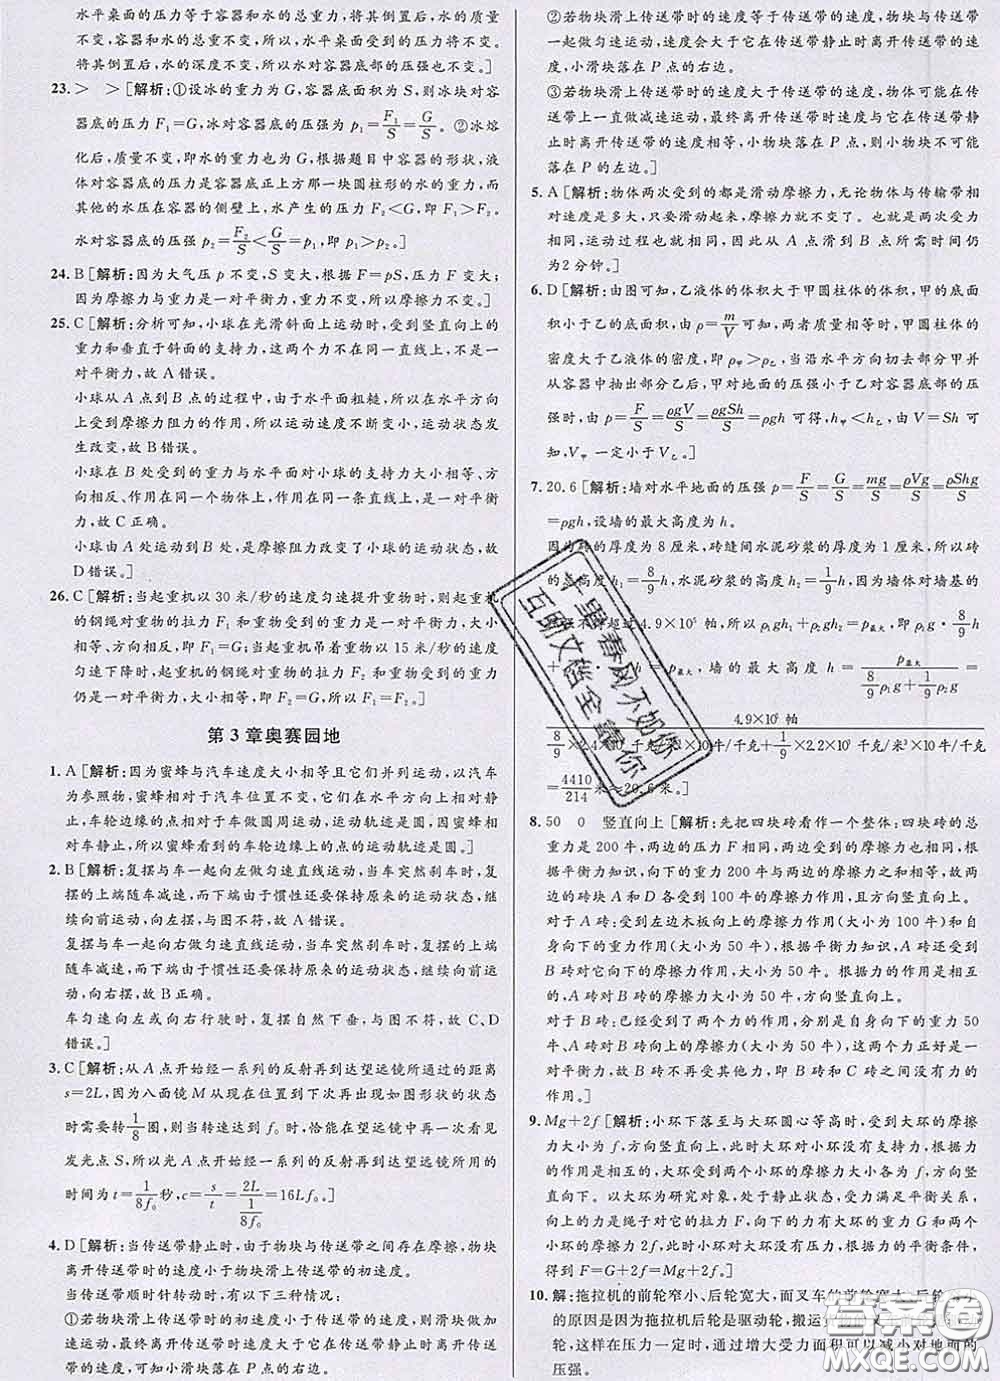 水平桌面的压力等于容器和水的总重，由于水的质量
不变，容器和水的总重不变，所以，水平桌面受到的压力将不变。
将其倒置后，水的深度不变，所以水对容器底部的压强也不变。]
23. ＞ ＞ [解析：①设冰的重力为 G，容器底面积为 S，则冰块对容
器底的压力 F₁＝G，冰对容器底的压强为 p₁＝F₁/S＝G/S。②冰熔
化后，质量不变，即水的重力也为 G，根据题目中容器的形状，液
体对容器底的压力是容器底正上方那一块圆柱形的水的重力，而
其他的水压在容器的侧壁上，水产生的压力 F₂＜G，即 F₁＞F₂。
水对容器底的压强 p₂＝F₂/S＜G/S＝p₁，即 p₁＞p₂。]
24. B [解析：因为大气压 p 不变，S 变大，根据 F＝pS，压力 F 变大；
因为摩擦力与重力是一对平衡力，重力不变，所以摩擦力不变。]
25. C [解析：分析可知，小球在光滑斜面上运动时，受到竖直向上的
重力和垂直于斜面的支持力，这两个力不在同一直线上，不是一
对平衡力，故 A 错误。
小球从 A 点到 B 点的过程中，由于水平面粗糙，所以小球在水平面
上受到摩擦阻力的作用，所以运动速度不断变小，运动状态发
生改变，故 B 错误。
小球在 B 处受到的重力与水平面对小球的支持力大小相等、方
向相反、作用在同一个物体上，作用在同一条直线上，是一对平衡
力，故 C 正确。
小球由 A 处运动到 B 处，是摩擦阻力改变了小球的运动状态，故
D 错误。]
26. C [解析：当起重机以 30 米/秒的速度匀速提升重物时，则起重机
的钢绳对重物的拉力 F₁ 和重物受到的重力是一对平衡力，大小
相等、方向相反，即 F₁＝G；当起重机吊着重物以 15 米/秒的速度
匀速下降时，起重机的钢绳对重物的拉力 F₂ 和重物受到的重力
仍是一对平衡力，大小相等，即 F₂＝G，所以 F₁＝F₂＝G。]
第 3 章奥赛园地
1. A [解析：因为蜜蜂与汽车速度大小相等且它们并列运动，以汽车
为参照物，蜜蜂相对于汽车位置不变，它们在水平方向上相对静
止，车轮边缘的点相对于车做圆周运动，运动轨迹是圆，因蜜蜂相
对车静止，所以蜜蜂看到的车轮边缘上的点的运动轨迹是圆。]
2. B [解析：复摆与车一起向左做匀速直线运动，当车突然刹车时，复
摆的上端随车减速，而下端由于惯性还要保持原来的运动状态，继
续向前运动，向左摆，与图不符，故 A 错误。
复摆与车一起向右做匀速直线运动，当车突然刹车时，复摆的上端
随车减速，而下端由于惯性还要保持原来的运动状态，继续向前运
动，向右摆，故 B 正确。
车匀速向左或向右行驶时，复摆自然下垂，与图不符，故 C、D
错误。]
3. C [解析：从 A 点开始经一系列的反射再到达望远镜所通过的距离
s＝2L，因为八面镜 M 从现在的位置到下次再出现如图形状的状态
时需要转 1/8 圈，则当转速达到 f₀ 时，恰能在望远镜中再一次看见
发光点 S，所以光 A 点开始经一系列的反射再到达望远镜所用的
时间为 t＝1/8f₀ 秒，c＝s/t＝2L/(1/8f₀)＝16Lf₀。]
4. D [解析：当传送带静止时，由于物块与传送带之间存在摩擦，物块
离开传送带时的速度小于物块滑上传送带的初速度。
当传送带顺时针转动时，有以下三种情况：
①若物块滑上传送带时的速度小于传送带的速度，物块可能一直做加速
运动，最终离开传送带时速度大于它在传送带静止时离开传送
带的速度，可知小滑块落在 P 点的右边。
②若物块滑上传送带时的速度等于传送带的速度，物块与传送带
一起做匀速运动，速度会大于它在传送带静止时离开传送带的速
度，小滑块落在 P 点的右边。
③若物块滑上传送带时的速度大于传送带的速度，物块可能在传送
带上一直做减速运动，最终离开传送带时速度与它在传送带静
止时离开传送带的速度相等，小物块落在 P 点，则小物块不可能
落在 P 点的左边。]
5. A [解析：物体两次受到的都是滑动摩擦力，无论物体与传输带相
对速度是多大，只要滑动起来，摩擦力就不变了。也就是两次受力
相同，运动过程也就相同，因此从 A 点滑到 B 点所需时间仍
为2分钟。]
6. D [解析：由图可知，乙液体的体积大于甲圆柱体的体积，甲的底面
积小于乙的底面积，由 ρ＝m/V 可知，两者质量相等，甲圆柱体的
密度大于乙液体的密度，即 ρ甲＞ρ乙，当沿水平方向切去部分甲并
从容器中抽出部分乙后，甲对地面的压强小于乙对容器底部的压
强时，由 p＝F/S＝ρgV/S＝ρgSh/S＝ρgh 可得，h甲＜h乙，由 V＝Sh 可
知，V甲 一定小于 V乙。]
7. 20.6 [解析：墙对水平地面的压强 p＝F/S＝G/S＝mg/S＝ρVg/S＝ρShg/S
＝ρgh，设墙的最大高度为 h。
因为砖的厚度为 8 厘米，砖缝间水泥砂浆的厚度为 1 厘米，所以砖
的总高度 h₁＝8/9h，水泥砂浆的总高度 h₂＝1/9h，因为墙体对墙基的
超过 4.9×10⁵ 帕，所以 ρ₁gh₁＋ρ₂gh₂＝p最大，即 ρ₁g·8/9h
＋p最大，墙的最大高度 h＝p最大/(8/9ρ₁g＋1/9ρ₂g)＝
4.9×10⁵ 帕/(8/9×2.4×10 牛/千克＋1/9×2.2×10³ 千克/米³×10 牛/千克)
＝4410/214 米≈20.6米。]
8. 50 0 竖直向上 [解析：先把四块砖看作一个整体：四块砖的总
重力是 200 牛，两边的压力 F 相同，两边的摩擦力大小相同，
根据平衡力知识，向下的重力 200 牛与两边的摩擦力之和相等，
故砖块 A 和 D 各受到 100 牛的摩擦力作用，且方向竖直向上。
对于 A 砖：受到左边木板向上的摩擦力作用（大小为 100 牛）和自
身向下的重力作用（大小为 50 牛），根据平衡力知识，A 砖受到
B 砖对它向下的摩擦力作用，大小为 50 牛。根据力的作用是相互
的，A 砖对 B 砖的摩擦力大小为 50 牛，方向竖直向上。
对于 B 砖：已经受到了两个力的作用，分别是自身向下的重力 50
牛、A 砖对它向上的摩擦力 50 牛，这两个力正好是一对平衡
力，故 B 砖不再受其他力的作用，即 B 砖和 C 砖之间没有力的
作用。]
9. Mg＋2f [解析：小环下落至与大环圆心等高时，受到大环的摩擦
力大小为 f，方向竖直向上，此时大环对小环没有支持力，根据力
的作用是相互的，大环受到两个小环的摩擦力大小相等，方向竖
直向下。以大环为研究对象，处于静止状态，受力满足平衡关系，
向上的力是绳子对它的拉力 F，向下的力有大环重力 G 和两个
小环的摩擦力 2f，此时小环对大环没有压力，根据力的平衡条件，
得到 F＝G＋2f＝Mg＋2f。]
10. 解：拖拉机的前轮窄小、后轮宽大，而叉车的前轮宽大、后轮窄小
的原因是因为拖拉机后轮是驱动轮，搬运
轮，这样在压力一定时，通过增大受力面积可以减小对地面的
压强。
平时春风不如你
互助文档全靠你
答案圈
MXQE.COM